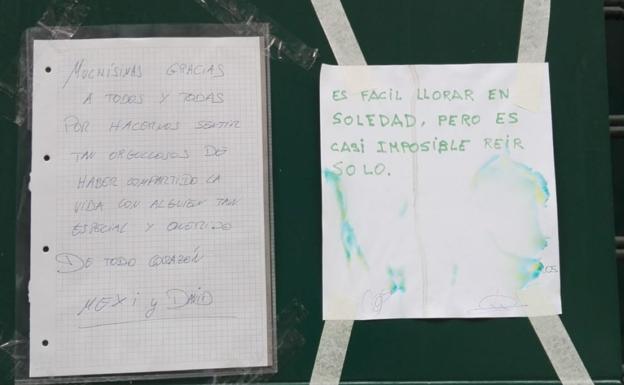 MUCHÍSIMAS GRACIAS
A TODOS Y TODAS
POR HACERNOS SENTIR
TAN ORGULLOSOS DE
HABER COMPARTIDO LA
VIDA CON ALGUIEN TAN
ESPECIAL Y QUERIDO
DE TODO CORAZÓN
MEXI y DAVID
ES FACIL LLORAR EN
SOLEDAD, PERO ES
CASI IMPOSIBLE REIR
SOLO.